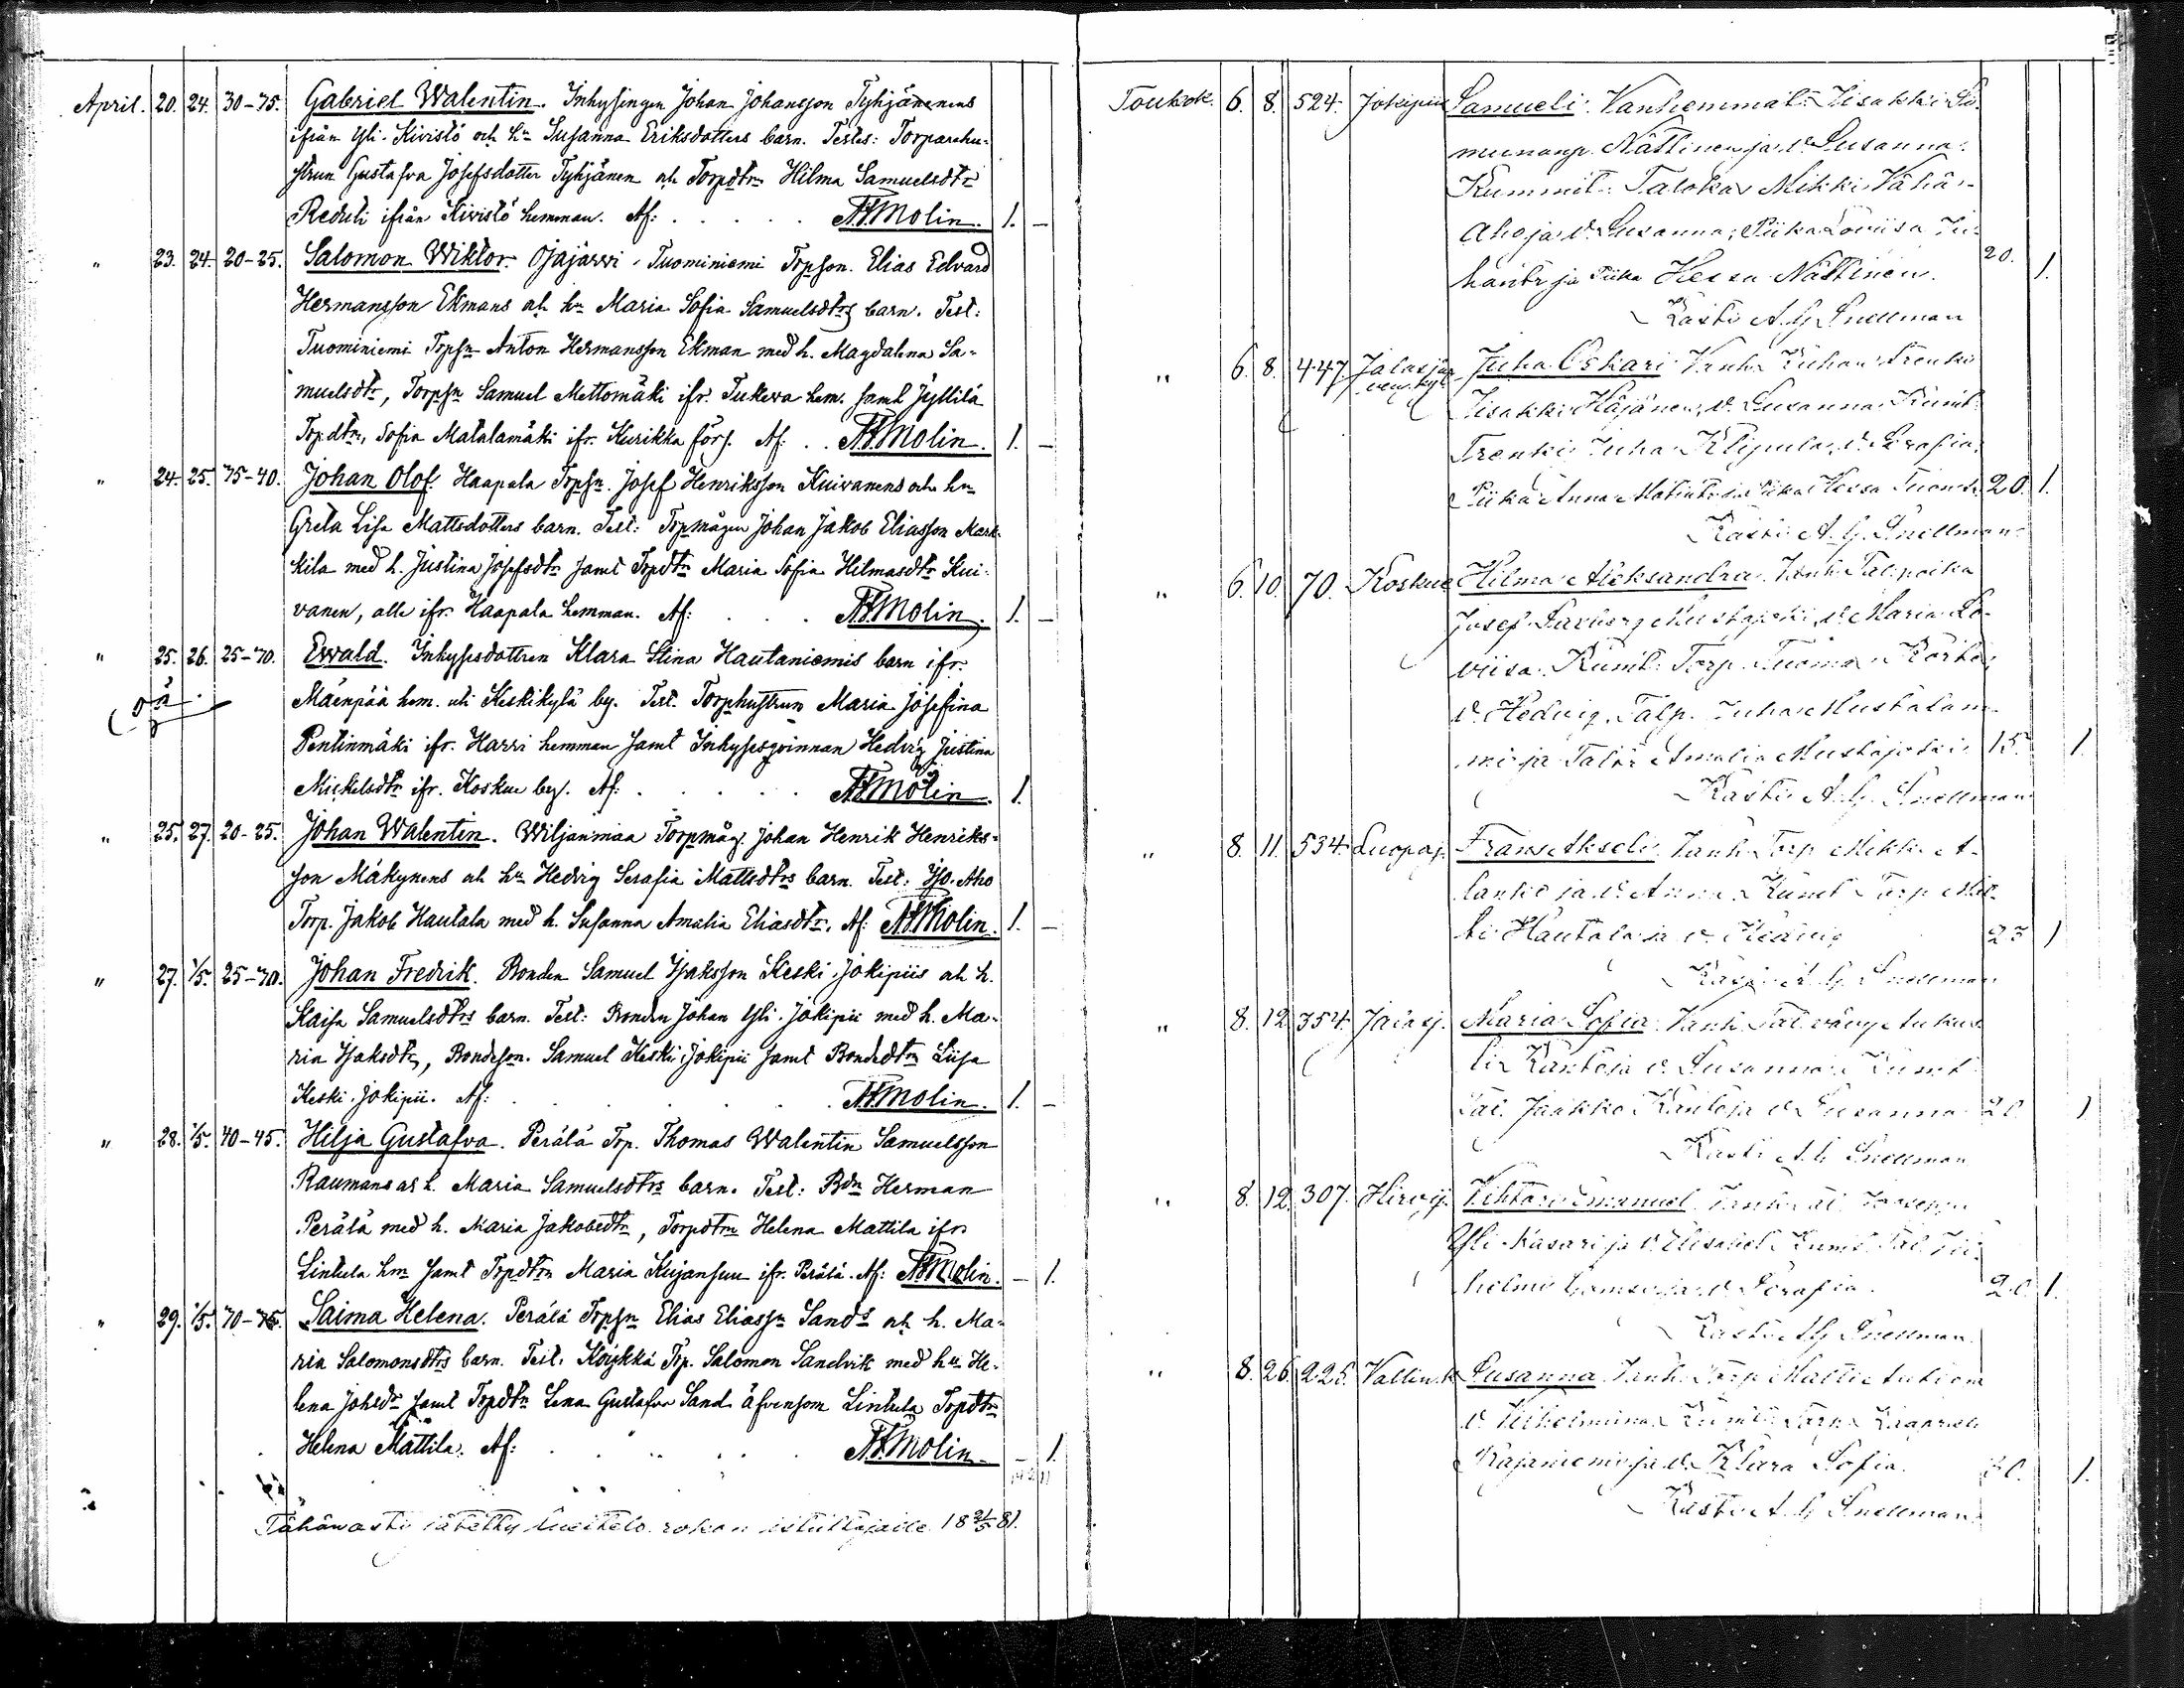 April. 20. 24. 30-75. Gabriel Walentin. Inhysingen Johan Johansson Tyhjänenens
ifrån Yli-Kivistö och hu Susanna Eriksdotters barn. Testes: Torparehu-
strun Gustafva Josefsdotter Tyhjänen och Torpdtrn Hilma Samuelsdtr
Reduli ifrån Kivistö hemman. Af: A.F. Molin. 1. —
" 23. 24. 20-25. Salomon Wiktor. Ojajärvi, Tuominiemi Torpson. Elias Edvard
Hermansson Ekmans och hu Maria Sofia Samuelsdtrs barn. Test:
Tuominiemi Torpsn Anton Hermansson Ekman med h. Magdalena Sa-
muelsdtr, Torpsn Samuel Mettomäki ifr. Tukeva hem. samt Jyllilä
Torpdtrn, Sofia Matalamäki ifr. Kurikka förs. Af: A.F. Molin. 1. —
" 24. 25. 75-40. Johan Olof. Haapala Torpsn. Josef Henriksson Kuivanens och hu
Greta Lisa Mattsdotters barn. Test: Torpmågen Johan Jakob Eliasson Mark-
kila med h. Justina Josefsdtr samt Torpdtrn Maria Sofia Hilmasdtr Kui-
vanen, alle ifr. Haapala hemman. Af: A.F. Molin. 1. —
" 25. 26. 25-70. Ewald. Inhysesdottren Klara Stina Hautaniemis barn ifr.
oä Mäenpää hem. uti Keskikylä by. Test. Torphustrun Maria Josefina
Pentinmäki ifr. Harri hemman samt Inhysesqvinnan Hedvig Justina
Mickelsdtr ifr. Koskue by. Af: A.F. Molin. 1.
" 25. 27. 20-25. Johan Walentin. Wiljanmaa Torpmåg. Johan Henrik Henriks-
son Mäkynens och hu Hedvig Serafia Mattsdtrs barn. Test: Iso-Aho
Torp. Jakob Hautala med h. Susanna Amalia Eliasdtr. Af: A.F. Molin. 1. —
" 27. 1/5. 25-70. Johan Fredrik. Bonden Samuel Isaksson Keski-Jokipiis och h.
Kaisa Samuelsdtrs barn. Test: Bonden Johan Yli-Jokipii med h. Ma-
ria Isaksdtr, Bondeson. Samuel Keski-Jokipii samt Bondedtrn Liisa
Keski-Jokipii. Af: A.F. Molin. 1. —
" 28. 1/5. 40-45. Hilja Gustafva. Perälä Trp. Thomas Walentin Samuelsson
Raumans och h. Maria Samuelsdtrs barn. Test: Bdn Herman
Perälä med h. Maria Jakobsdtr, Torpdtrn Helena Mattila ifr
Lintula hm samt Torpdtrn Maria Kujansuu ifr. Perälä. Af: A.F. Molin. — 1.
" 29. 1/5. 70-75. Saima Helena. Perälä Torpsn Elias Eliassn Sands och h. Ma-
ria Salomonsdtrs barn. Test. Köykkä Trp. Salomon Sandvik med hu He-
lena Johsdr samt Torpdtrn Lena Gustafva Sand äfvensom Lintula Torpdtrn
Helena Mattila. Af: A.F. Molin — 1.
Tähän asti jätetty luettelo rokon istuttajalle 18 31/5 81.
Toukok. 6. 8. 524. Jokipii Samueli. Vanhemmat: Iisakki Sa-
muunp. Nättinen ja v. Susanna.
Kummit: Talokas Mikki Vähä-
Aho ja v. Susanna; Piika Loviisa Ju-
hantr ja Piika Hessa Nättinen. 20. 1.
Kasti A. G. Snellman
" 6. 8. 447. Jalasjär
ven kyl. Juha Oskari. Vanh. Renki
Iisakki Häjänen, v. Susanna. Kumit.
Trenki Juha Klipula, v. Serafia.
Piika Anna Matintr ja Piika Hessa 20. 1.
Kasti A. G. Snellman
" 6. 10. 70. Koskue Hilma Aleksandra. Vanh. Tal. poika
Josef Mustajoki, v. Maria Lo-
viisa. Kumit: Torp. Tuomas
v. Hedvig, Talp. Juha Mustalam-
mi ja Taltr Amalia Mustajoki 15. 1.
Kasti A. G. Snellman
" 8. 11. 534. Luopaj. Frans Akseli. Vanh. Torp. Mikki A-
lanko ja v. Anna. Kumit Torp. Mat-
ti Hautala ja v. Hedvig 25 1
Kasti A. G. Snellman
" 8. 12. 354. Jalasj. Maria Sofia. Vanh. Tal. vävy Aukus-
ti Rantoja v. Susanna. Kumit
Tal. Jaakko Rantoja v. Susanna 20 1
Kasti A. G. Snellman
" 8. 12. 307. Hirvij. Vihtori Emanuel. Vanh. Tal. Jooseppi
Yli-Kasari ja v. Elisabet. Kumit Tal. Vil-
helmi ja v. Serafia. 20 1.
Kasti A. G. Snellman
" 8. 26. 225. Vallin k. Susanna. Vanh. Torp. Matti
v. Vilhelmiina. Kumit Torp. Kaaprieli
Rajaniemi ja v. Klara Sofia. 30. 1.
Kasti A. G. Snellman